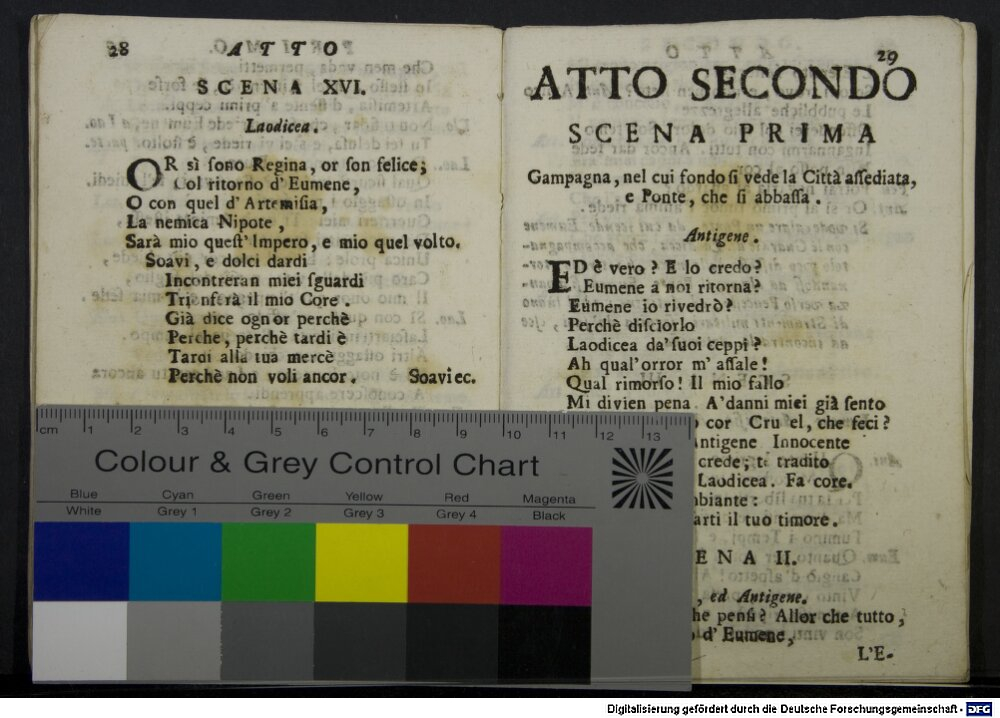 28 ATTO
SCENA XVI.
Laodicea.
OR sì sono Regina, or son felice;
Col ritorno d'Eumene,
O con quel d'Artemisia,
La nemica Nipote,
Sarà mio quest' Impero, e mio quel volto.
Soavi, e dolci dardi
Incontreran miei sguardi
Trionferà il mio Core.
Già dice ognor perchè
Perche, perchè tardi è
Tardi alla tua mercè
Perchè non voli ancor. Soavi ec.
29
ATTO SECONDO
SCENA PRIMA
Gampagna, nel cui fondo si vede la Città assediata,
e Ponte, che si abbassa.
Antigene.
ED è vero? E lo credo?
Eumene a noi ritorna?
Eumene io rivedrò?
Perchè disciorlo
Laodicea da' suoi ceppi?
Ah qual'orror m'assale!
Qual rimorso! Il mio fallo
Mi divien pena. A'danni miei già sento
cor Cru el, che feci?
ntigene Innocente
crede; te tradito
Laodicea. Fa core.
biante:
arti il tuo timore.
ENA II.
, ed Antigene.
he pensi? Allor che tutto,
d'Eumene,
L'E-
cm 1 2 3 4 5 6 7 8 9 10 11 12 13
Colour & Grey Control Chart
Blue Cyan Green Yellow Red Magenta
White Grey 1 Grey 2 Grey 3 Grey 4 Black
Digitalisierung gefördert durch die Deutsche Forschungsgemeinschaft - DFG